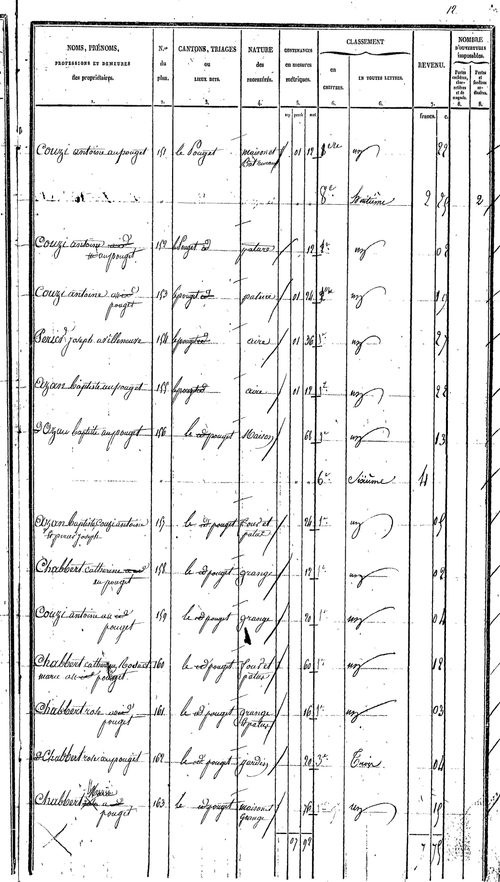 12
NOMS, PRÉNOMS, PROFESSIONS ET DEMEURES des propriétaires.
N.os du plan.
CANTONS, TRIAGES ou LIEUX DITS.
NATURE des PROPRIÉTÉS.
CONTENANCES en mesures métriques.
CLASSEMENT
en chiffres.
EN TOUTES LETTRES.
REVENU.
NOMBRE D'OUVERTURES imposables.
1. 2. 3. 4. 5. 6. 6. 7. 8. 8.
francs. c.
Couzi antoine au pouget 151 le Pouget maison et 01 12 1ere un 22
8e huitième 2 25 2
Couzi antoine au pouget 152 le Pouget id pature 12 1e un 02
Couzi antoine au id pouget 153 le pouget id pature 01 24 un 19
joseph a villeneuve 154 le pouget id aire 01 36 1e un 27
azan baptiste au pouget 155 le pouget id aire 01 12 1e un 22
baptiste au pouget 156 le id pouget Maison 68 1e un 13
6e Sixième 4
azan baptiste Couzi antoine joseph 157 le id pouget four et patus 26 1e un 05
Chabbert catherine au pouget 158 le id pouget grange 12 1e un 02
Couzi antoine au id pouget 159 le id pouget grange 20 1e un 04
Chabbert catherine marie au id pouget 160 le id pouget four et patus 60 1e un 12
Chabbert rose au id pouget 161 le id pouget grange et patus 16 1e un 03
Chabbert rose au pouget 162 le id pouget jardin 20 3e Trois 04
Chabbert Marie a id pouget 163 le id pouget maison et grange 76 1e un 15
07 92 7 75